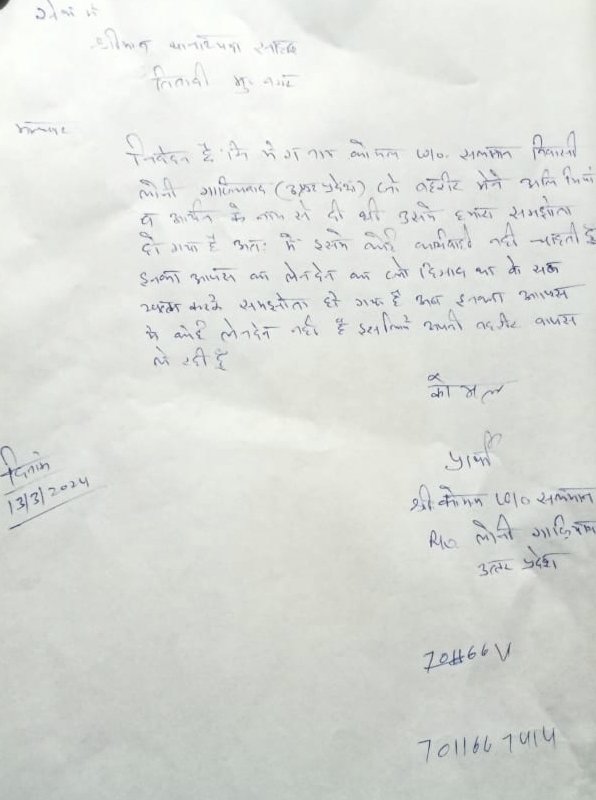 सेवा में
श्रीमान थानाध्यक्ष
तितावी मु० नगर
निवेदन है कि मेरा नाम कोमल W/o. सलमान निवासी
लोनी गाजियाबाद (उत्तर प्रदेश) जो तहरीर मैने
व के नाम से दी थी उसमें हमारा समझौता
हो गया है अतः मैं इसमें कोई कार्यवाही नहीं चाहती हूँ
इनका आपस का लेनदेन का जो हिसाब था के
खत्म करके समझौता हो गया है अब इनका आपस
मे कोई लेनदेन नहीं है इसलिये अपनी तहरीर वापस
ले रही हूँ
कोमल
प्रार्थी
दिनांक
13/3/2024
श्री कोमल W/o सलमान
R/o लोनी गाजियाबाद
उत्तर प्रदेश